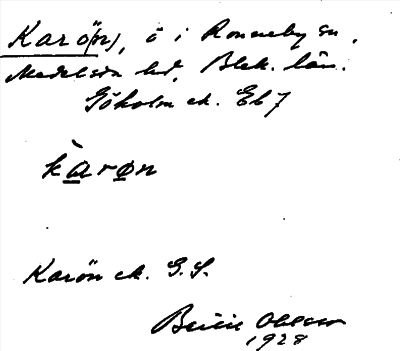 Karö(n), ö i Ronneby sn,
Medelsta hd, Blek. län.
Göholm ek. Eb 7
kàrøn
Karön ek. G.S.
Ohlsson
1928